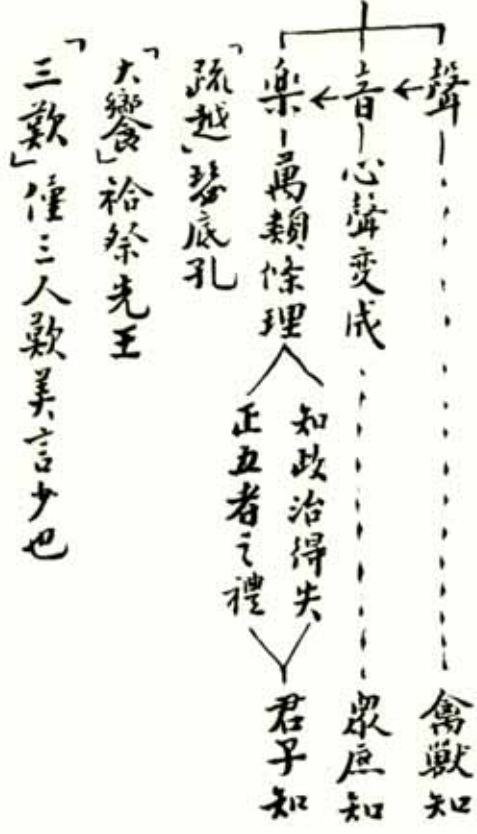 聲 禽獸知
音 心聲变成 眾庶知
樂 萬類條理
知政治得失
正五者之禮
君子知
「疏越」瑟底孔
「大饗」祫祭先王
「三歎」僅三人歎美言少也